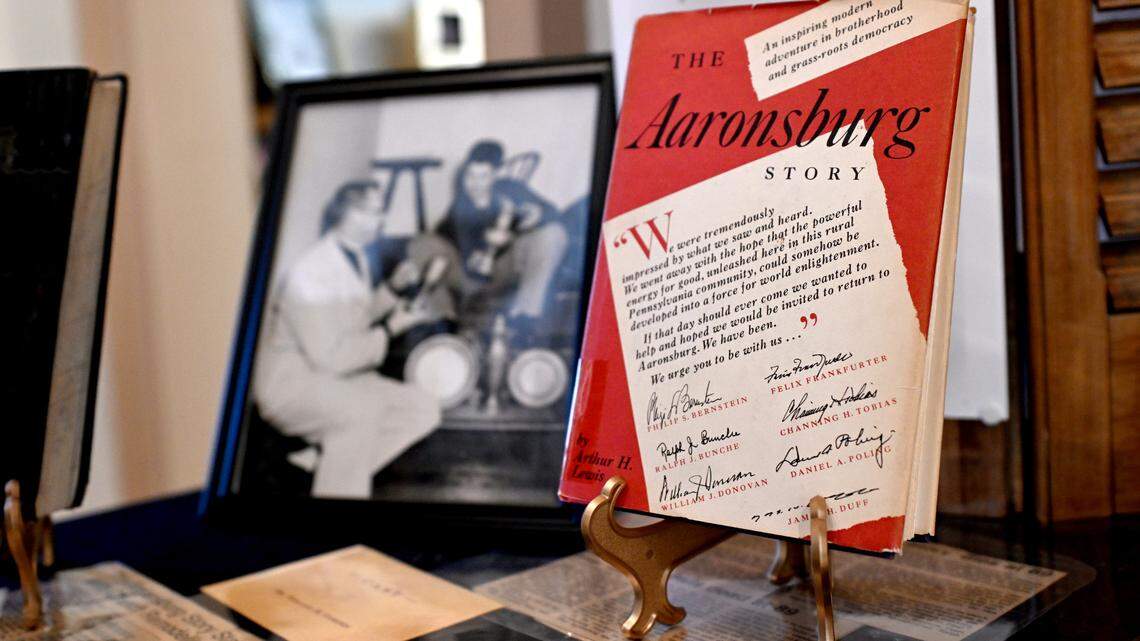 An inspiring modern
adventure in brotherhood
and grass-roots democracy
THE
Aaronsburg
STORY
"We were tremendously
impressed by what we saw and heard.
We went away with the hope that the powerful
energy for good, unleashed here in this rural
Pennsylvania community, could somehow be
developed into a force for world enlightenment.
If that day should ever come we wanted to
help and hoped we would be invited to return to
Aaronsburg. We have been.
We urge you to be with us . . ."
Felix Frankfurter
FELIX FRANKFURTER
Philip S. Bernstein
PHILIP S. BERNSTEIN
Channing H. Tobias
CHANNING H. TOBIAS
Ralph J. Bunche
RALPH J. BUNCHE
Daniel A. Poling
DANIEL A. POLING
William J. Donovan
WILLIAM J. DONOVAN
JAMES H. DUFF
by
Arthur H.
Lewis